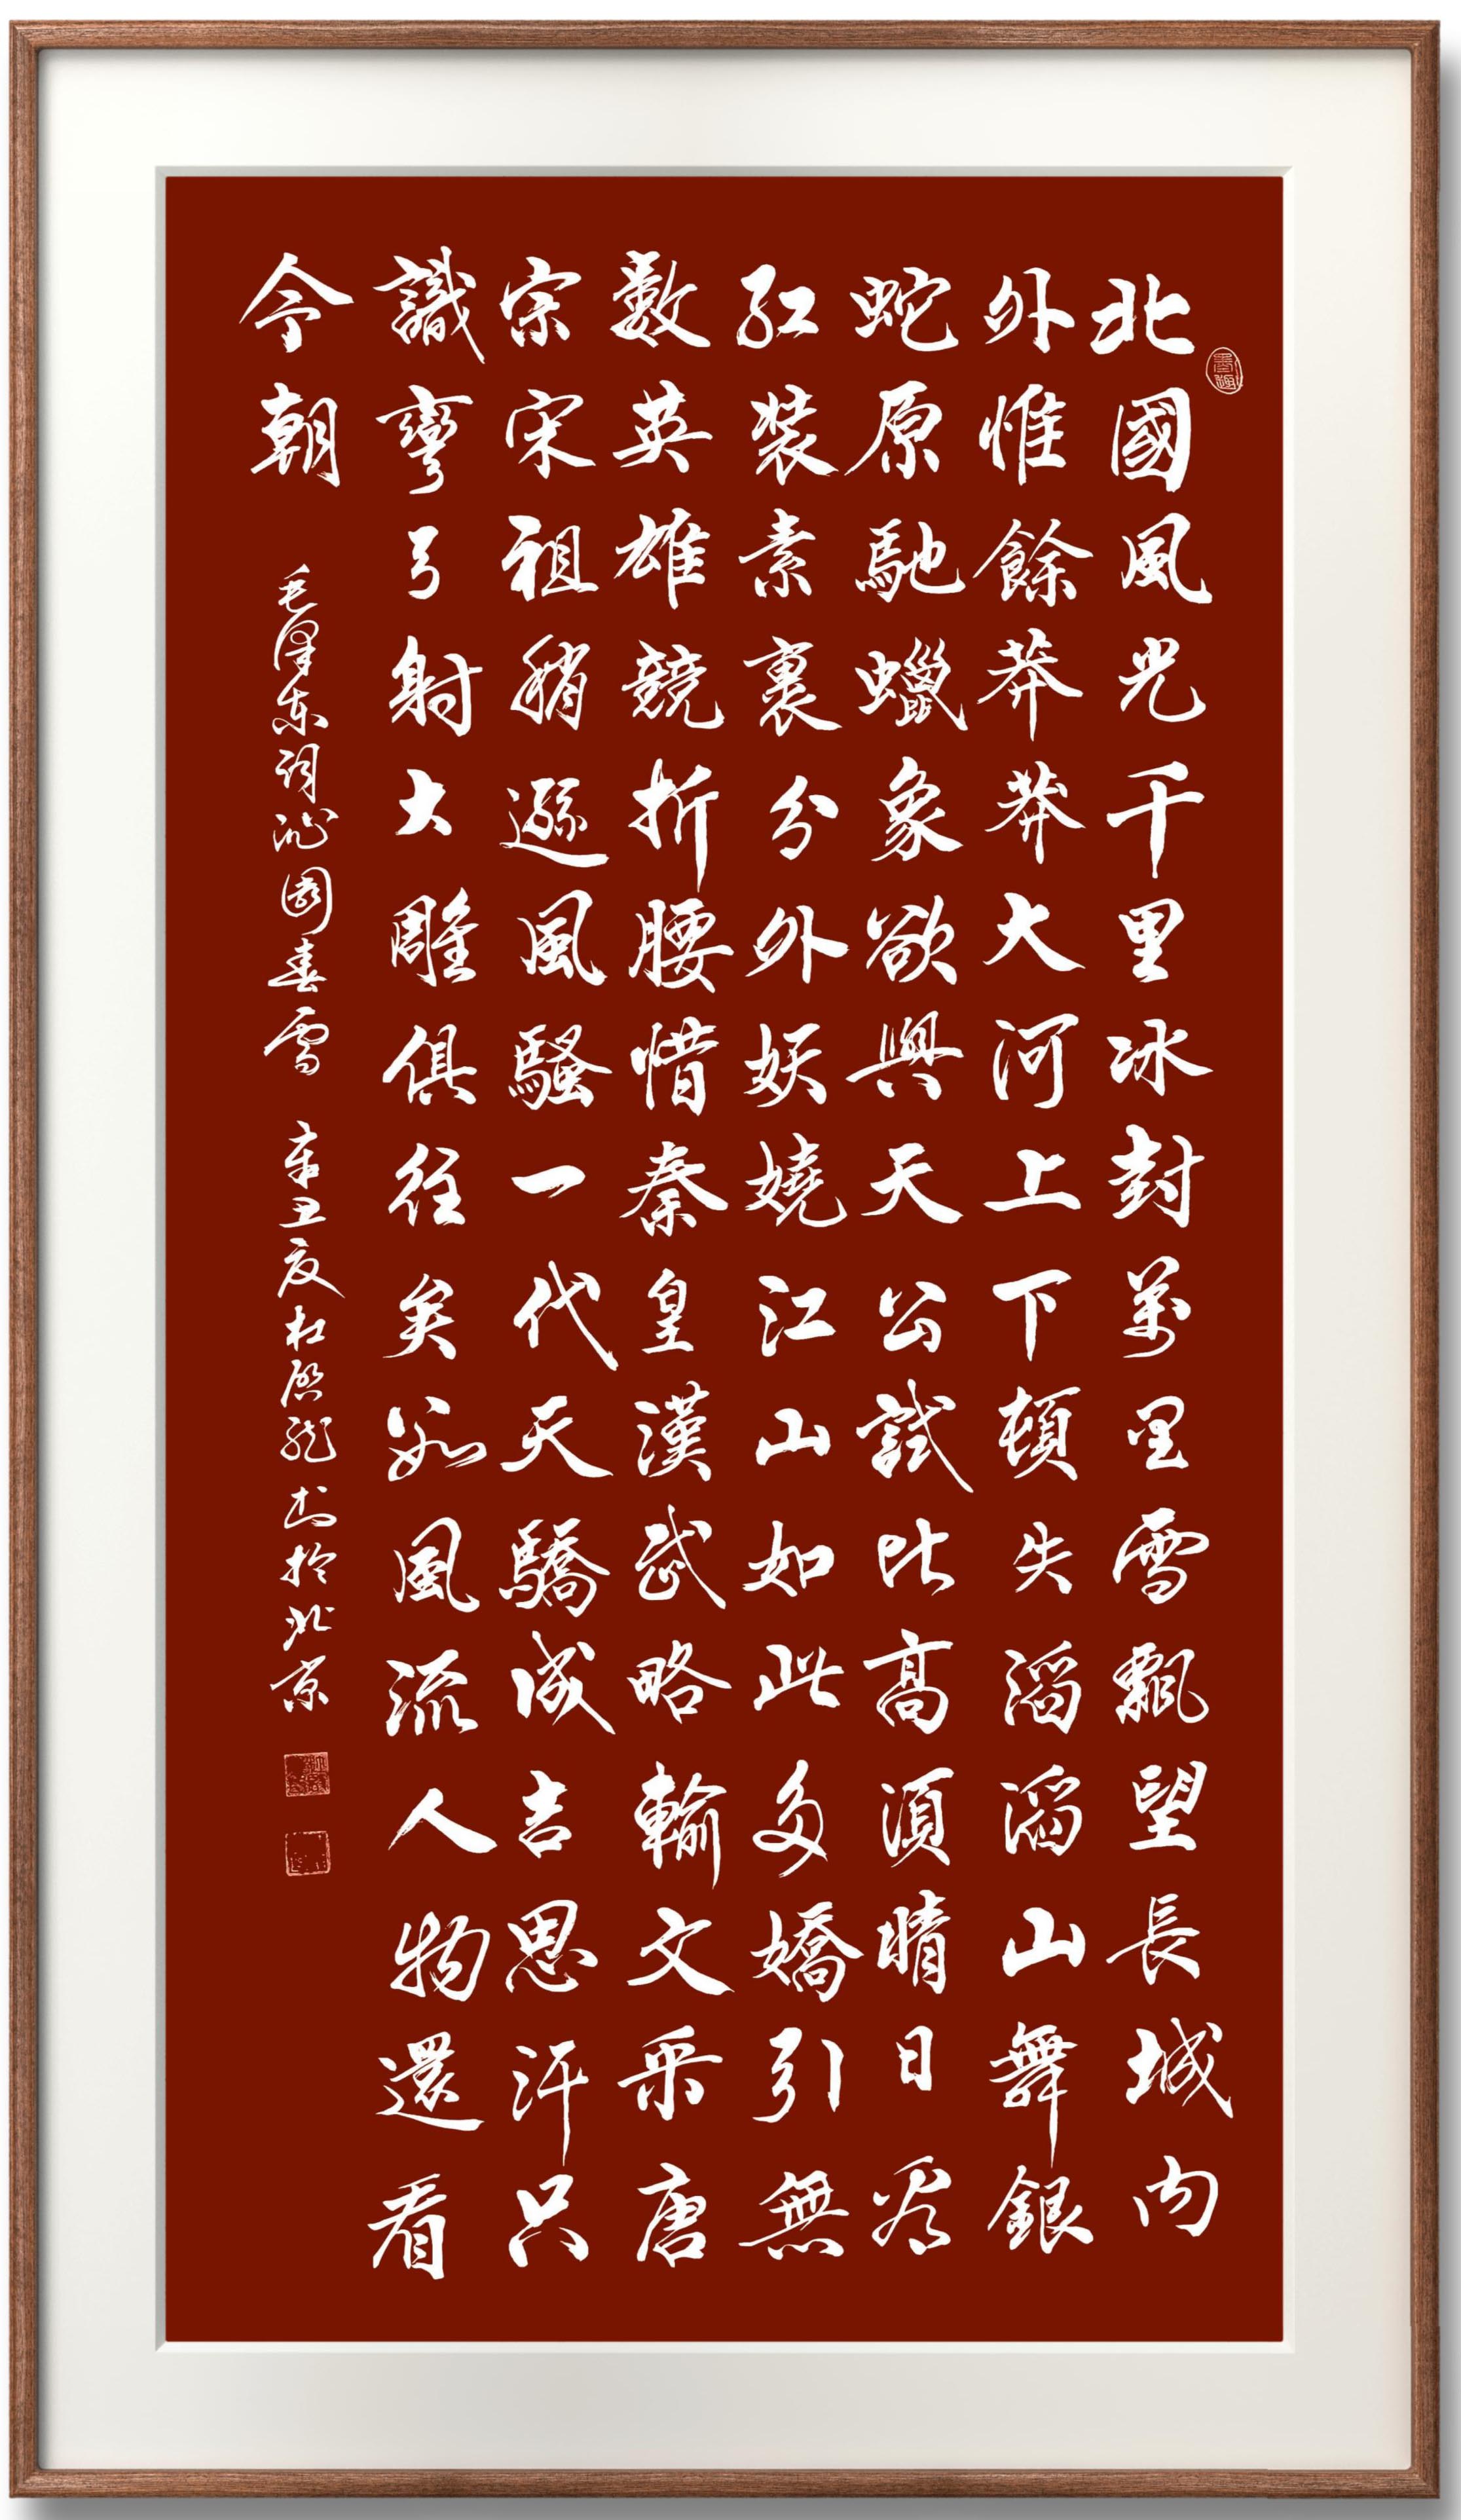 北國風光千里冰封萬里雪飄望長城内
外惟餘莽莽大河上下頓失滔滔山舞銀
蛇原馳蠟象欲與天公試比高須晴日看
紅裝素裹分外妖嬈江山如此多嬌引無
數英雄競折腰惜秦皇漢武略輸文采唐
宗宋祖稍遜風騷一代天驕成吉思汗只
識彎弓射大雕俱往矣數風流人物還看
今朝
毛澤東詞沁園春雪 辛丑夏杜啓龍書於北京